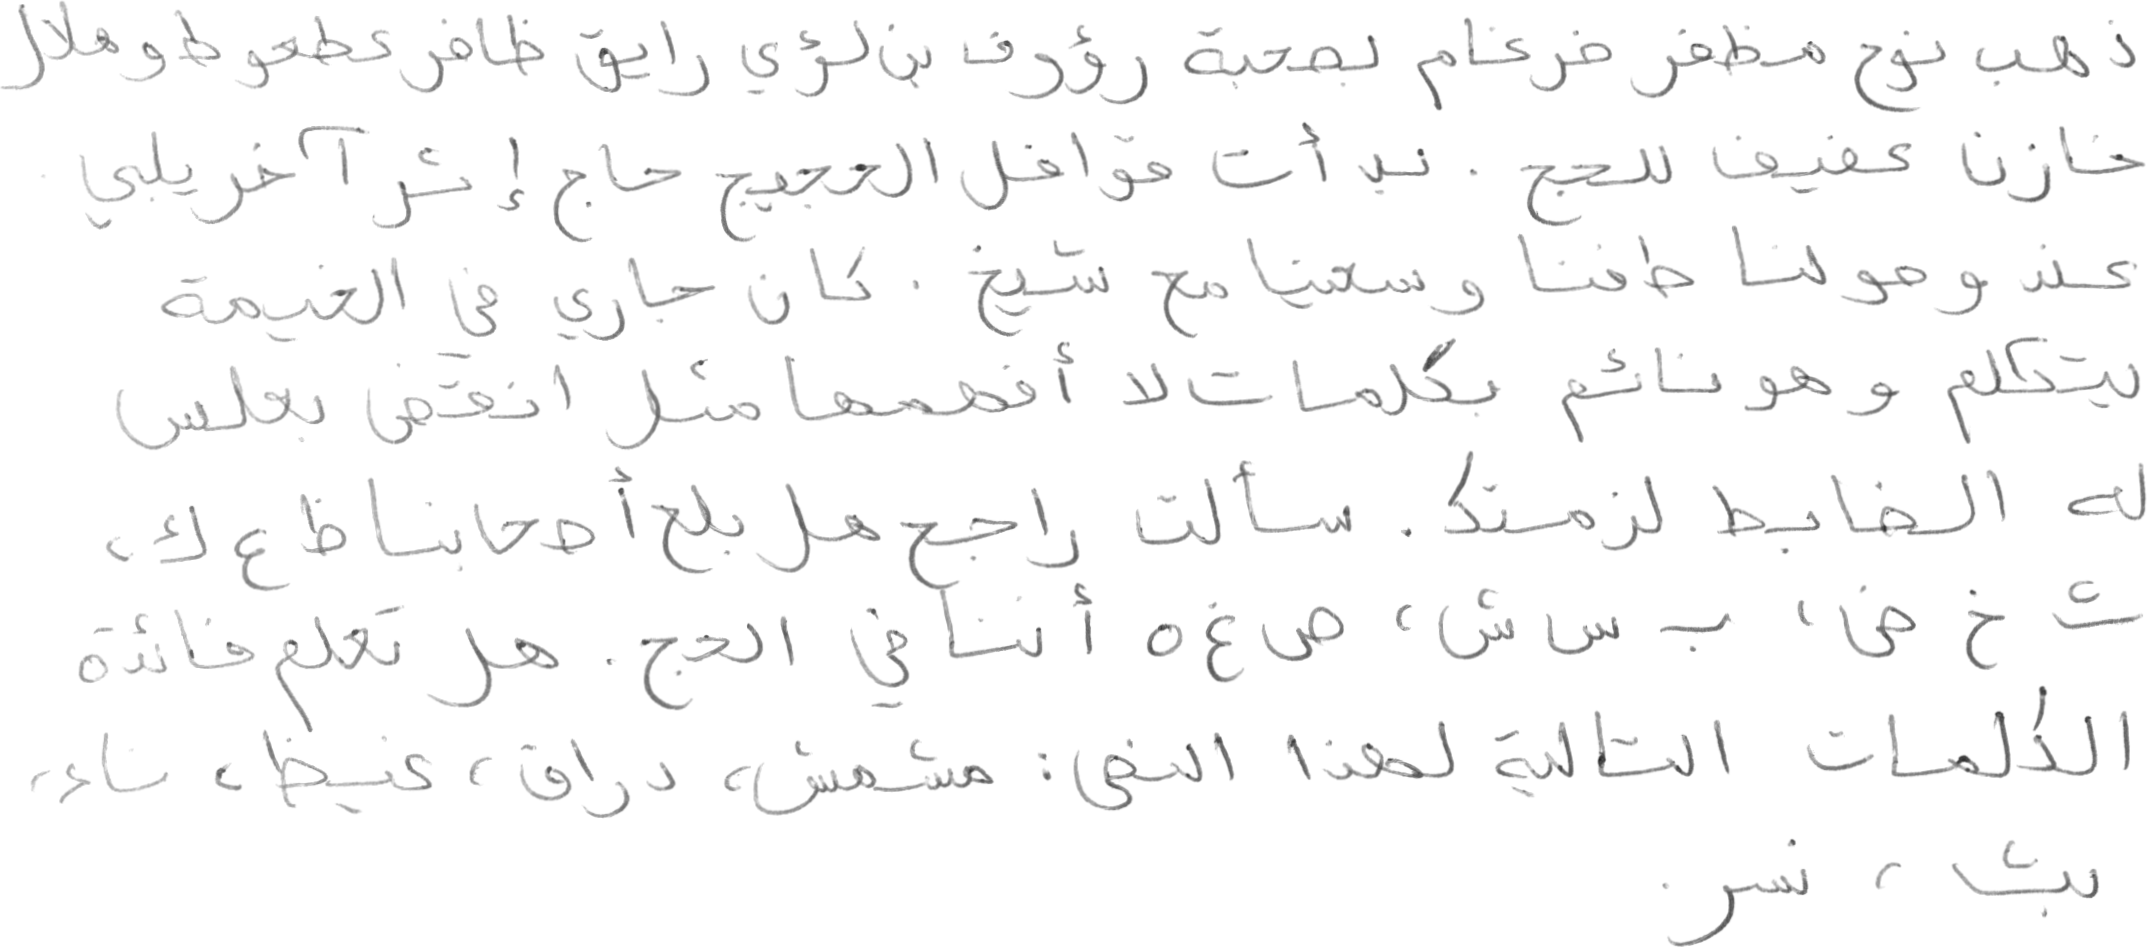 ذهب نوح مظفر ضرغام بصحبة رؤوف بن لؤي رايق ظافر عطعوط وهلال
خازن عفيف للحج . بدأت قوافل الحجيج حاج إثر آخر يلبي
عند وصولنا طفنا وسعينا مع شيخ . كان جاري في الخيمة
يتكلم وهو نائم بكلمات لا أفهمها مثل انقض بعلس
له الضابط لزمستك . سألت راجح هل بلغ أصحابنا ظ ع ك،
ث خ ض ، ب س ش ، ص غ ه أننا في الحج . هل تعلم فائدة
الكلمات التالية لهذا النص : مشمش، دراق، غيظ، ناء،
بث ، نسر .